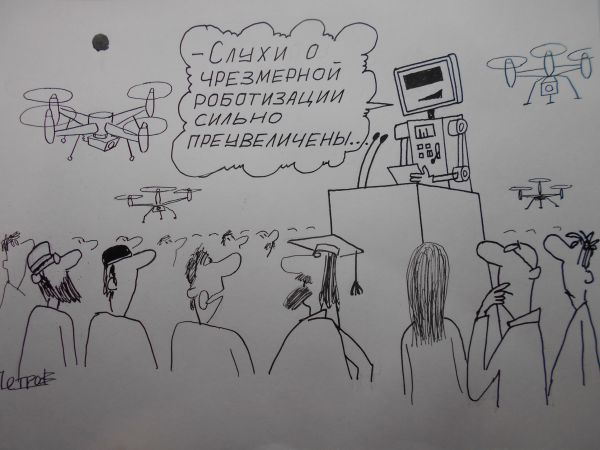 - Слухи о
чрезмерной
роботизации
сильно
преувеличены...
Петров